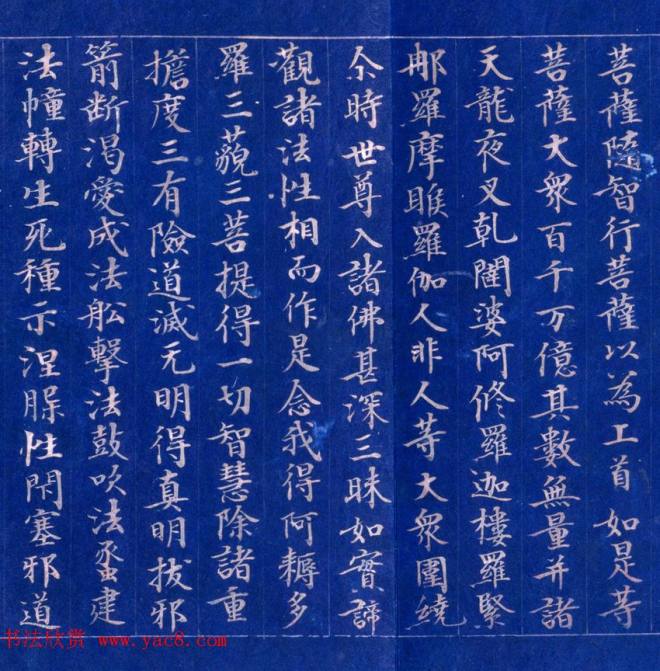 菩薩隨智行菩薩以為上首如是等
菩薩大衆百千万億其數無量并諸
天龍夜叉乹闥婆阿修羅迦樓羅緊
𨚗羅摩睺羅伽人非人等大衆圍繞
尒時世尊入諸佛甚深三昧如實諦
觀諸法性相而作是念我得阿耨多
羅三藐三菩提得一切智慧除諸重
擔度三有險道滅无明得真明拔邪
箭断渴愛成法舩擊法鼓吹法蠡建
法幢轉生死種示涅脲性閇塞邪道
书法欣赏 www.yac8.com